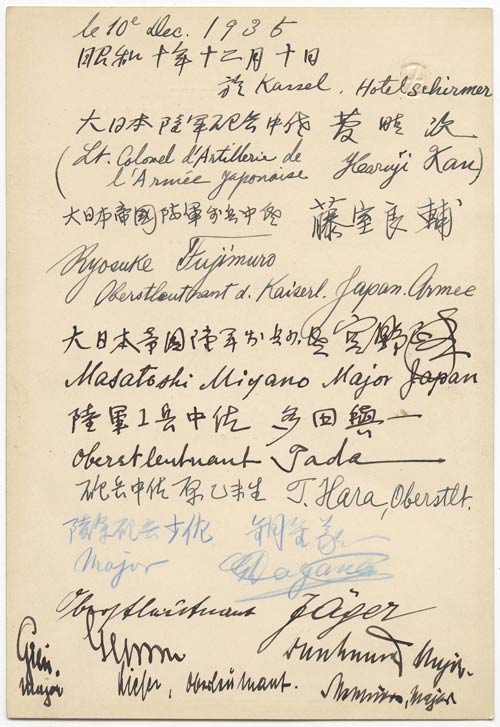 le 10e Dec. 1935
昭和十年十二月十日
於 Kassel. Hotel schirmer
大日本陸軍砲兵中佐 菅晴次
(Lt. Colonel d'Artillerie de Haruji Kan)
l'Armée Japonaise
大日本帝國陸軍砲兵中佐 藤室良輔
Ryosuke Fujimuro
Oberstleutnant d. Kaiserl. Japan. Armee
大日本帝国陸軍
Masatoshi Miyano Major Japan
陸軍工兵中佐 多田與一
Oberstleutnant Tada
砲兵中佐 原乙未生 T. Hara, Oberstlt.
陸軍砲兵少佐
Major
Oberstleutnant Jäger
Major
Oberleutnant.
Major